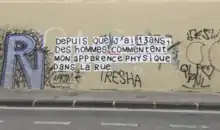 DEPUIS QUE J'AI 13 ANS
DES HOMMES COMMENTENT
MON APPARENCE PHYSIQUE
DANS LA RUE
IRESHA